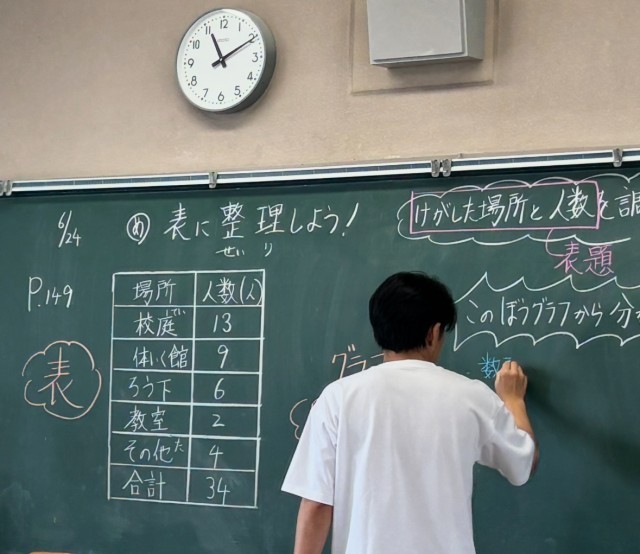 12
1
2
3
4
5
6
7
8
9
10
11
6/24
め 表に整理しよう!
せいり
けがした場所と人数を調
表題
P.149
表
場所 人数(人)
校庭 13
てい
体いく館 9
ろう下 6
教室 2
その他 4
た
合計 34
このぼうグラフから分か
グラフ
数